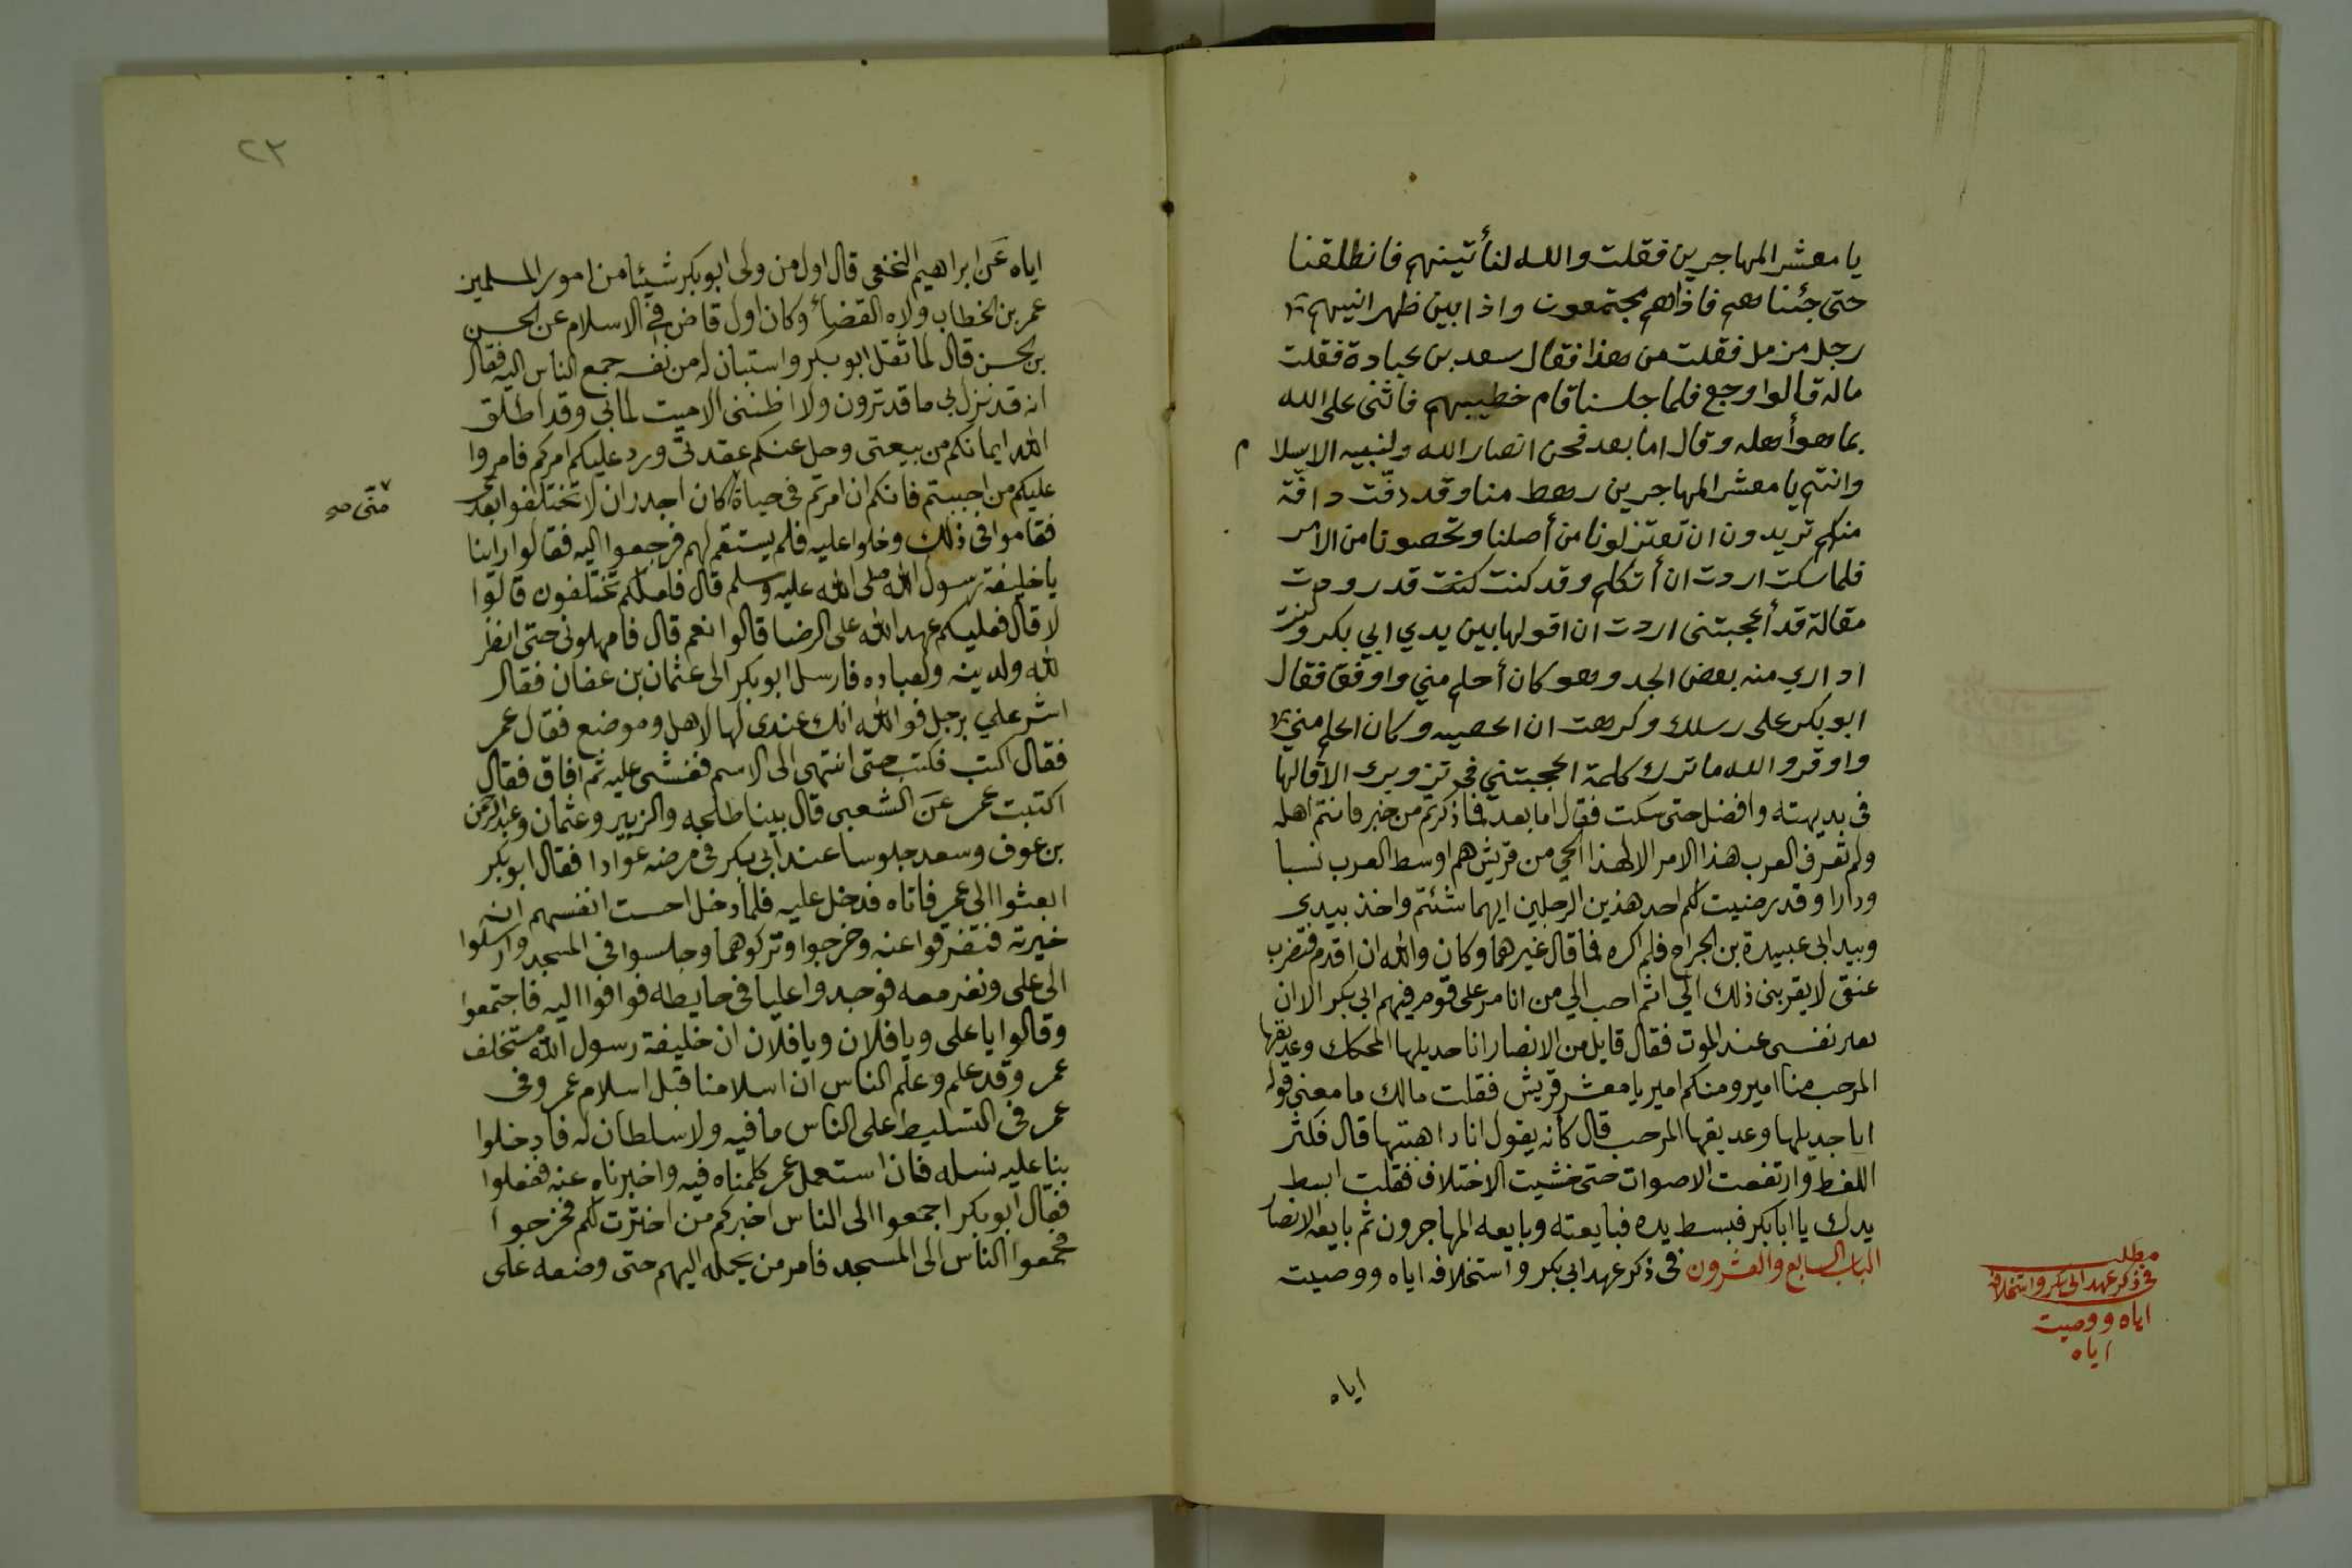 يا معشر المهاجرين فقلت والله لنأتينهم فانطلقنا
حتى جئناهم فاذاهم مجتمعون واذا بين ظهرانيهم
رجل مزمل فقلت من هذا فقال سعد بن عبادة فقلت
ماله قالوا وجع فلما جلسنا قام خطيبهم فاثنى على الله
بما هو أهله وقال اما بعد فنحن انصار الله ولنبيه الاسلام
وانتم يا معشر المهاجرين رهط منا وقد دفّت دافّة
منكم تريدون ان تعتزلونا من أصلنا وتحصونا من الامر
فلما سكت اردت ان أتكلم وقد كنت كنت قد رودت
مقالة قد أعجبتني اردت ان اقولها بين يدي ابي بكر وكنت
اداري منه بعض الجد وهو كان أحلم مني واوفق فقال
ابو بكر على رسلك وكرهت ان اعصيه وكان احلم مني
واوقر والله ما ترك كلمة اعجبتني في تزويرك الا قالها
في بديهته وافضل حتى سكت فقال اما بعد فما ذكرتم من خير فانتم اهله
ولم تعرف العرب هذا الامر الا لهذا الحي من قريش هم اوسط العرب نسبا
ودارا وقد رضيت لكم احد هذين الرجلين ايهما شئتم واخذ بيدي
وبيد ابي عبيدة بن الجراح فلم اكره مما قال غيرهما وكان والله ان اقدم فتضرب
عنقي لا يقربني ذلك الى اثم احب الي من ان اؤمر على قوم فيهم ابي بكر الا ان
تغير نفسي عند الموت فقال قايل من الانصار انا جديلها المحكك وعديقها
المرحب منا امير ومنكم امير يا معشر قريش فقلت مالك ما معنى قوله
انا جديلها وعديقها المرحب قال كأنه يقول انا داهيتها قال فكثر
اللغط وارتفعت الاصوات حتى خشيت الاختلاف فقلت ابسط
يدك يا ابا بكر فبسط يده فبايعته وبايعه المهاجرون ثم بايعه الانصار
الباب السابع والعشرون في ذكر عهد ابي بكر واستخلافه اياه ووصيته
مطلب
في ذكر عهد ابي بكر واستخلافه
اياه ووصيته
اياه
اياه
٢٣
اياه عن ابراهيم النخعي قال اول من ولى ابو بكر شيئا من امور المسلمين
عمر بن الخطاب ولاه القضاء وكان اول قاض في الاسلام عن الحسن
بن الحسن قال لما ثقل ابو بكر واستبان له من نفسه جمع الناس اليه فقال
انه قد نزل بي ما قد ترون ولا اظنني الا ميت لما بي وقد اطلق
الله ايمانكم من بيعتي وحل عنكم عقدتى ورد عليكم امركم فامروا
عليكم من احببتم فانكم ان امرتم في حياة كان اجدر ان لا تختلفوا بعدي
منّى صح
فقاموا في ذلك وخلوا عليه فلم يستقم لهم فرجعوا اليه فقالوا راينا
يا خليفة رسول الله صلى الله عليه وسلم قال فلعلكم تختلفون قالوا
لا قال فعليكم عهد الله على الرضا قالوا نعم قال فامهلوني حتى انظر
لله ولدينه ولعباده فارسل ابو بكر الى عثمان بن عفان فقال
اشر علي برجل فوالله انك عندى لها لاهل وموضع فقال عمر
فقال اكتب فكتب حتى انتهى الى الاسم فغشى عليه ثم افاق فقال
اكتبت عمر عن الشعبي قال بينا طلحه والزبير وعثمان وعبد الرحمن
بن عوف وسعد جلوسا عند ابي بكر في مرضه عوادا فقال ابو بكر
ابعثوا الى عمر فاتاه فدخل عليه فلما دخل احست انفسهم انه
خيرته فتفرقوا عنه وخرجوا وتركوهما وجلسوا في المسجد وارسلوا
الى على ونفر معه فوجدوا عليا في حايطه فوافوا اليه فاجتمعوا
وقالوا يا على ويا فلان ويا فلان ان خليفة رسول الله مستخلف
عمر وقد علم وعلم الناس ان اسلامنا قبل اسلام عمر وفى
عمر في التسليط على الناس ما فيه ولا سلطان له فادخلوا
بنا عليه نسله فان استعمل عمر كلمناه فيه واخبرناه عنه ففعلوا
فقال ابو بكر اجمعوا الى الناس اخبركم من اخترت لكم فخرجوا
فجمعوا الناس الى المسجد فامر من يحمله اليهم حتى وضعه على